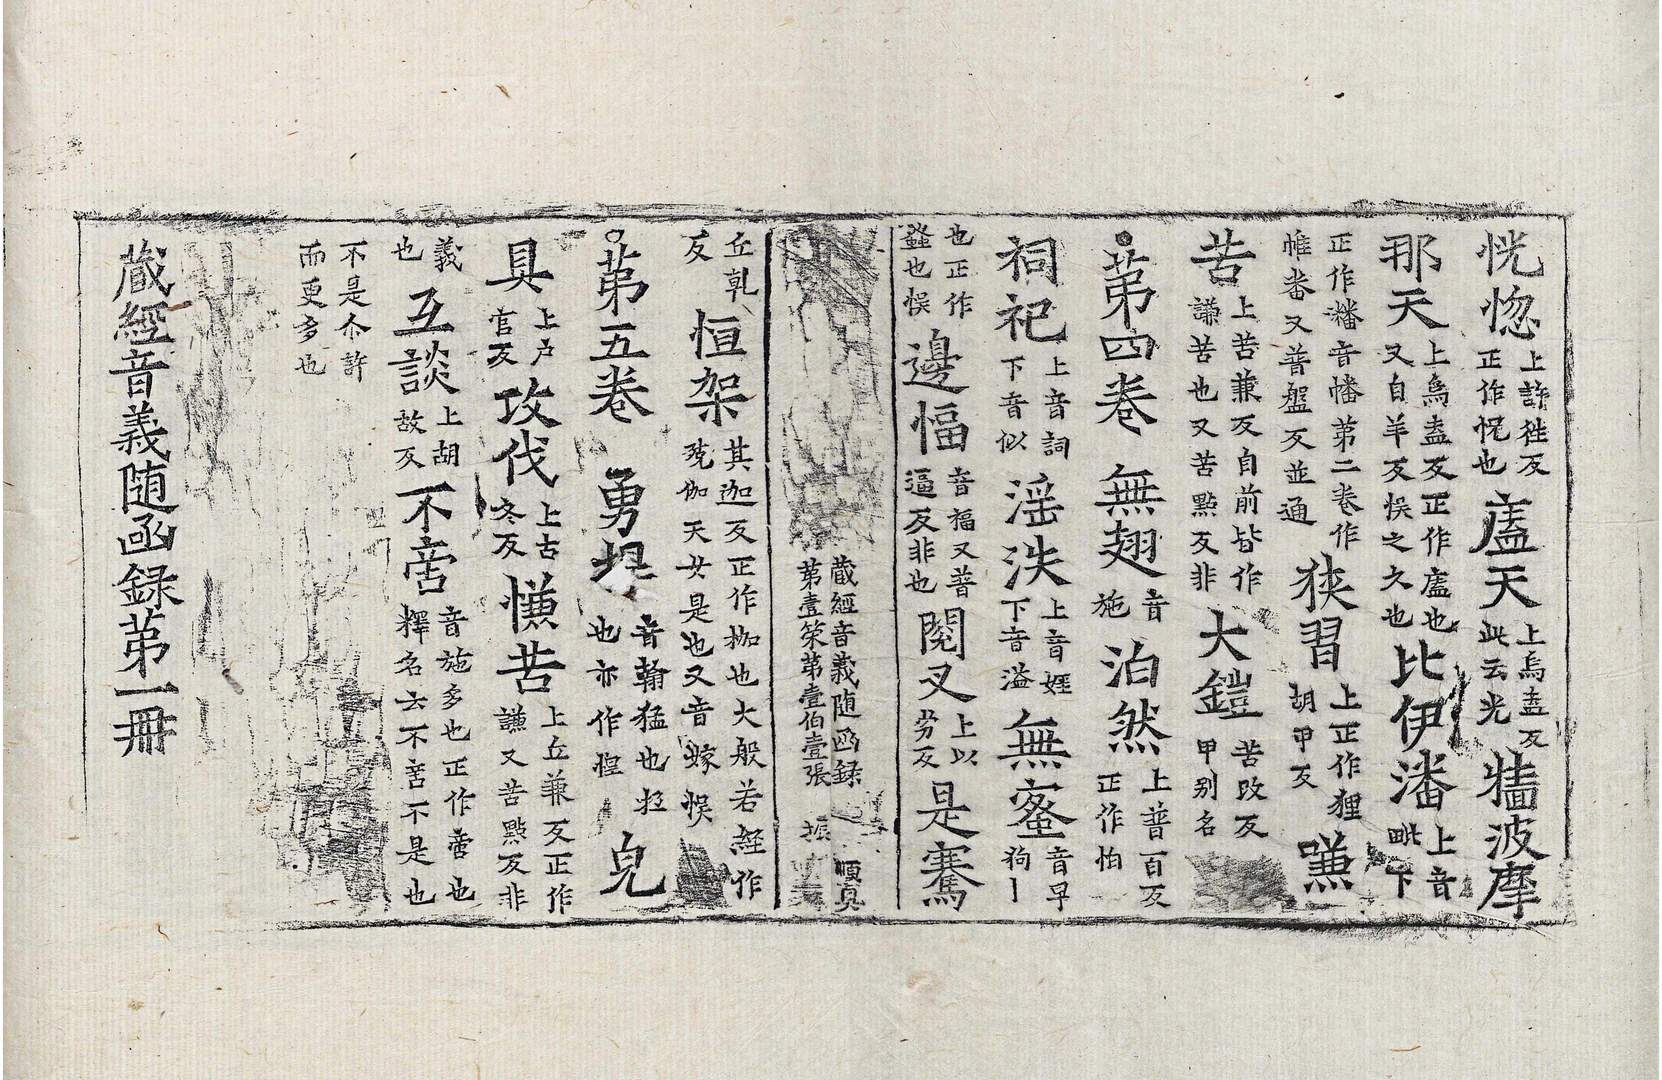 恍惚上許往反正作怳也廅天上烏盍反此云光墻波摩
那天上烏盍反正作廅也又自羊反悮之久也比伊潘上音毗下
正作潘音幡第二卷作帷番又普盤反並通狹習上正作狎胡甲反嗛
苦上苦兼反自前皆作謙苦也又苦點反非大鎧苦改反甲别名
第四卷 無翅音施泊然上普百反正作怕
祠祀上音詞下音似淫泆上音婬下音溢無蚤音早狗丨
也正作蝨也悮邊幅音福又普逼反非也閱叉上以劣反是騫
藏經音義随函録
第壹筞第壹伯壹張 振 順真
丘乹反恒架其迦反正作枷也大般若經作殑伽天女是也又音嫁悮
第五卷 勇捍音翰猛也拒也亦作猂皃
具上户官反攻伐上古冬反慊苦上丘兼反正作謙又苦點反非
義也互談上胡故反不啻音施多也正作啻也釋名云不啻不是也
不是尒許而更多也
藏經音義随函録第一冊